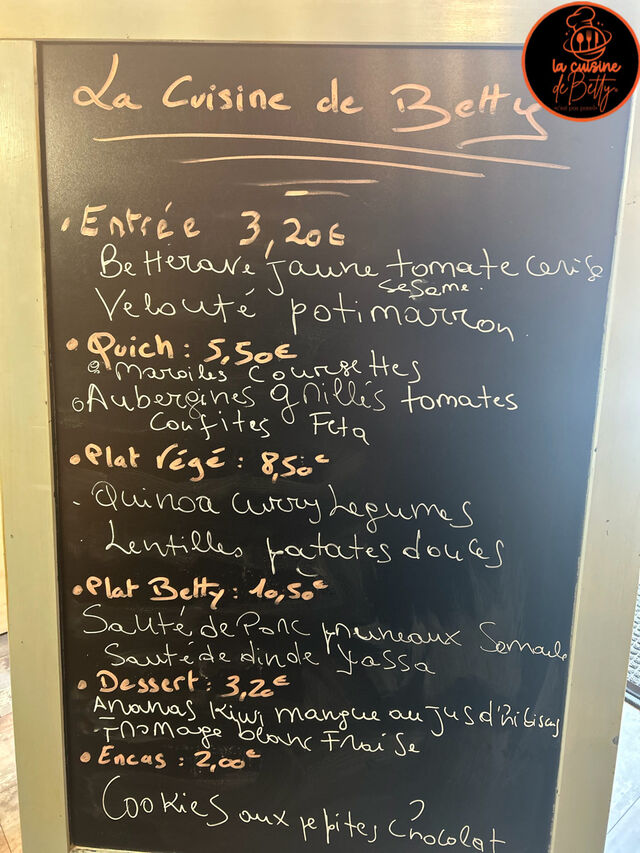 la cuisine
de Betty
La Cuisine de Betty
• Entrée 3,20€
Betterave jaune tomate cerise
sesame.
Velouté potimarron
• Quich : 5,50€
Maroiles Courgettes
Aubergines grillés tomates
Confites Feta
• Plat végé : 8,50€
- Quinoa curry Legumes
Lentilles patates douces
• Plat Betty : 10,50€
Sauté de Porc pruneaux
Sauté de dinde Yassa
• Dessert : 3,20€
Ananas Kiwi mangue au jus d'hibiscus
- Fromage blanc Fraise
• Encas : 2,00€
Cookies aux pepites Chocolat